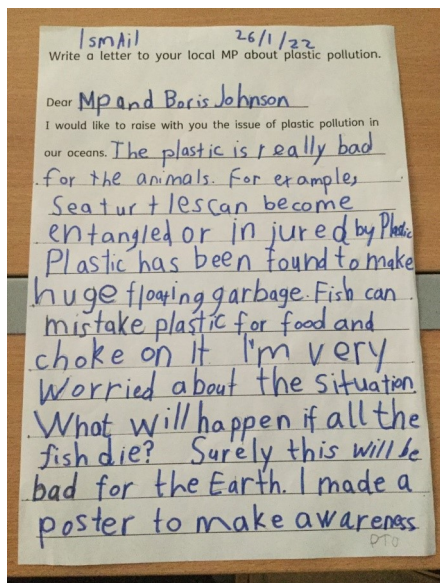 Ismail 26/1/22
Write a letter to your local MP about plastic pollution.
Dear MP and Boris Johnson
I would like to raise with you the issue of plastic pollution in
our oceans. The plastic is really bad
for the animals. For example,
Sea turtles can become
entangled or injured by Plastic
Plastic has been found to make
huge floating garbage. Fish can
mistake plastic for food and
choke on It I'm very
Worried about the situation.
What will happen if all the
fish die? Surely this will be
bad for the Earth. I made a
poster to make awareness
PTO